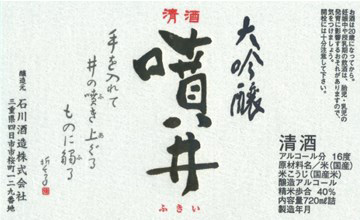 お酒は20歳になってから。
妊娠中や授乳期の飲酒は、胎児・乳児の
発育に影響するおそれがありますので、
気をつけましょう。
開栓には十分注意して下さい。
大吟醸
清酒
噴井
ふきい
手を入れて
井の噴き上ぐる
ものに觸る
醸造元
石川酒造株式会社
三重県四日市市桜町一二九番地
清酒
アルコール分 16度
原材料名／米(国産)
米こうじ(国産米)
醸造アルコール
精米歩合 40%
内容量720ml詰
製造年月